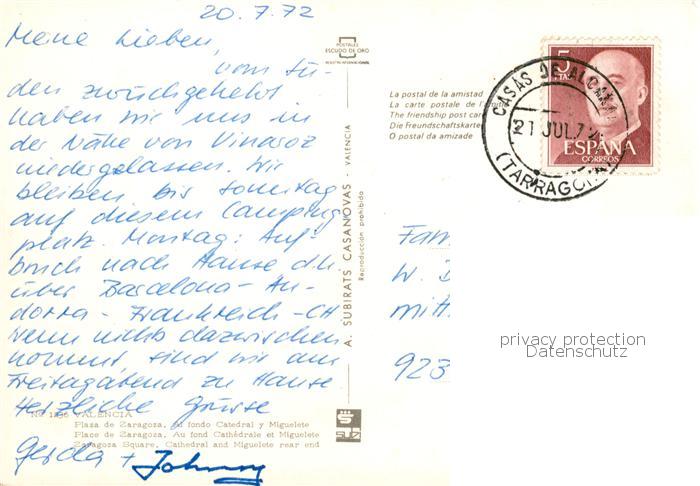 20.7.72
Meine Lieben,
vom Sü-
den zurückgekehrt
haben wir uns in
der Nähe von Vinaroz
niedergelassen. Wir
bleiben bis Sonntag
auf diesem Camping
platz. Montag: Auf-
bruch nach Hause d.h.
über Barcelona - An-
dorra - Frankreich - CH
wenn nichts dazwischen
kommt, sind wir am
Freitagabend zu Hause
Herzliche Grüsse
Gerda + Johnny
VALENCIA
Plaza de Zaragoza, Al fondo Catedral y Miguelete
Place de Zaragoza, Au fond Cathédrale et Miguelete
Zaragoza Square, Cathedral and Miguelete rear end
POSTALES
ESCUDO DE ORO
REGISTRO INTERNACIONAL
A. SUBIRATS CASANOVAS - VALENCIA
Reproducción prohibida
SUBI
La postal de la amistad
La carte postale de l'amitié
The friendship post card
Die Freundschaftskarte
O postal da amizade
5
PTAS
ESPAÑA
CORREOS
CASAS DE ALCANAR
21 JUL.72
(TARRAGONA)
Fam
W. B
Mitt
923
privacy protection
Datenschutz